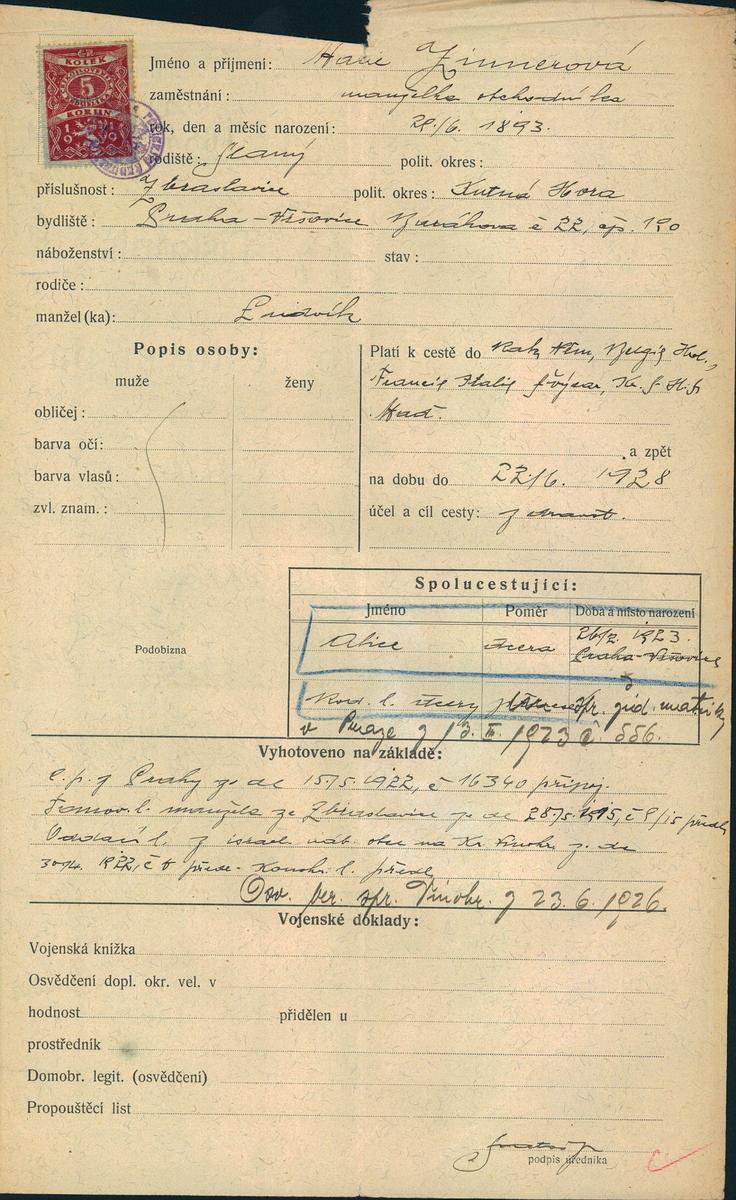 KOLEK
5
KORUN
1919
Jméno a příjmení: Marie Zinnerová
zaměstnání: manželka obchodníka
rok, den a měsíc narození: 29./6. 1893.
rodiště: Slaný polit. okres:
příslušnost: Zbraslavice polit. okres: Kutná Hora
bydliště: Praha-Vršovice č 22, čp. 190
náboženství: stav:
rodiče:
manžel(ka): Ludvík
Popis osoby:
muže ženy
obličej:
barva očí:
barva vlasů:
zvl. znam.:
Platí k cestě do Rak, Něm, Belgie, Hol.,
Francie Italie Švýcar,
Maď.
a zpět
na dobu do 22./6. 1928
účel a cíl cesty: zdravot.
Podobizna
Spolucestující:
Jméno Poměr Doba a místo narození
Alice dcera 26/2. 1923.
Praha-Vršovice
Rod. l. dcery spr. žid. matriky
v Praze z 13. II. 1923 č 556.
Vyhotoveno na základě:
C. p. z Prahy ze de 15./5. 1922, č 16340 připoj.
Domov. l. manžela ze Zbraslavice ze de 28./5. 1915, č 9/15 předl.
Oddací l. z israel. náb. obce na Kr. Vinohr. z. de
30/4. 1922, č 6 předl.
Osv. ber. spr. Vinohr. z 23. 6. 1926.
Vojenské doklady:
Vojenská knížka
Osvědčení dopl. okr. vel. v
hodnost přidělen u
prostředník
Domobr. legit. (osvědčení)
Propouštěcí list
podpis úředníka